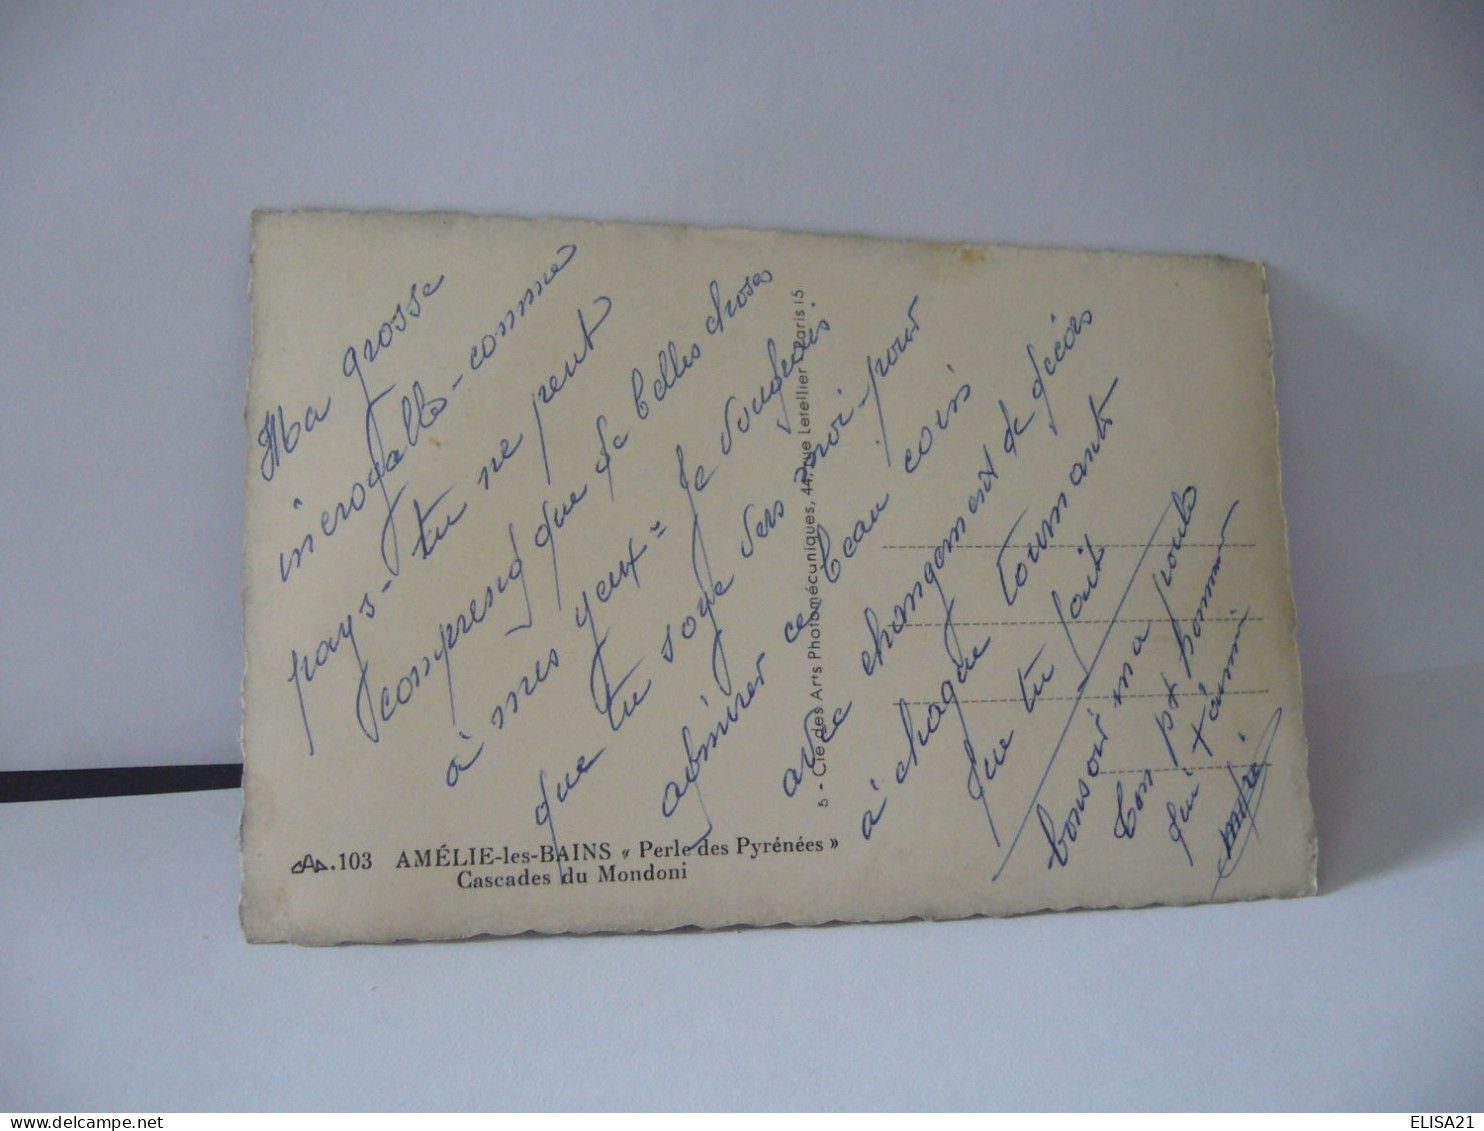 Ma grosse
incroyable - comme
pays - tu ne peut
comprend que de belles choses
à mes yeux = Je voudrais
que tu soye vers moi - pour
admirer ce beau coin
avec changement de décors
à chaque tournants
que tu fait
bonsoir ma poule
ton pt homme
qui t'aime
5 - Cie des Arts Photomécaniques, 44, rue Letellier - Paris 15
.103 AMÉLIE-les-BAINS « Perle des Pyrénées »
Cascades du Mondoni
www.delcampe.net
ELISA21